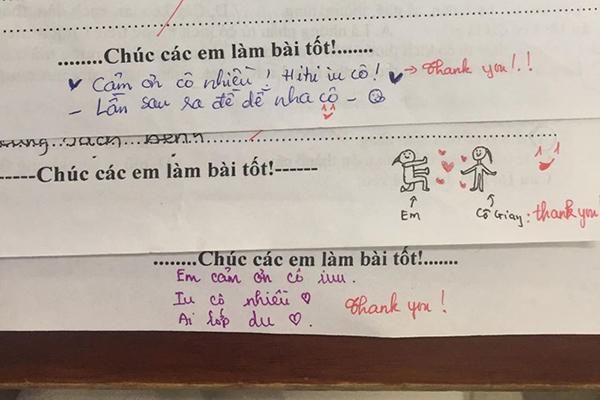 .........Chúc các em làm bài tốt!.......
Cảm ơn cô nhiều! Hihi iu cô! → Thank you!!
- Lần sau ra đề dễ nha cô -
-----Chúc các em làm bài tốt!------
Em
Cô Giay: thank you!
........Chúc các em làm bài tốt!.......
Em cảm ơn cô iuu.
Iu cô nhiều
Thank you!
Ai lốp du